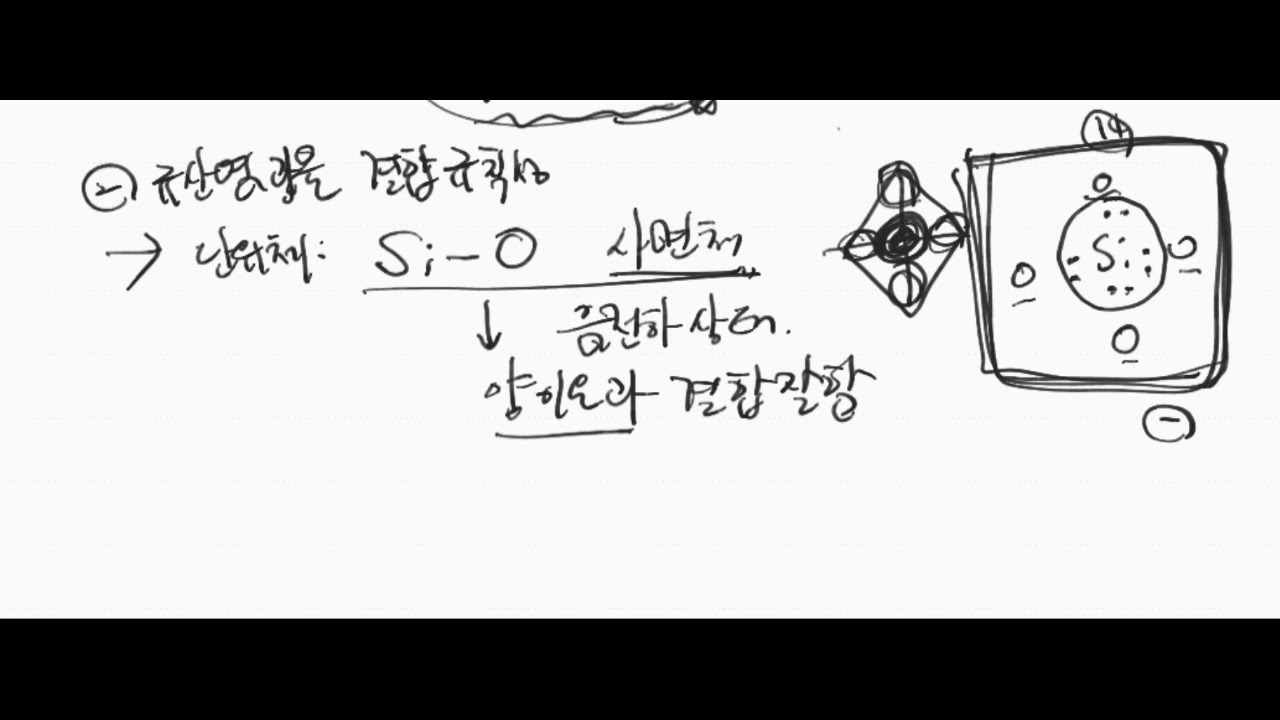 ② 규산염 광물 결합 규칙성
→ 단위체: Si-O 사면체
↓ 음전하 상태.
양이온과 결합 잘함
14
O
O Si O
O
-